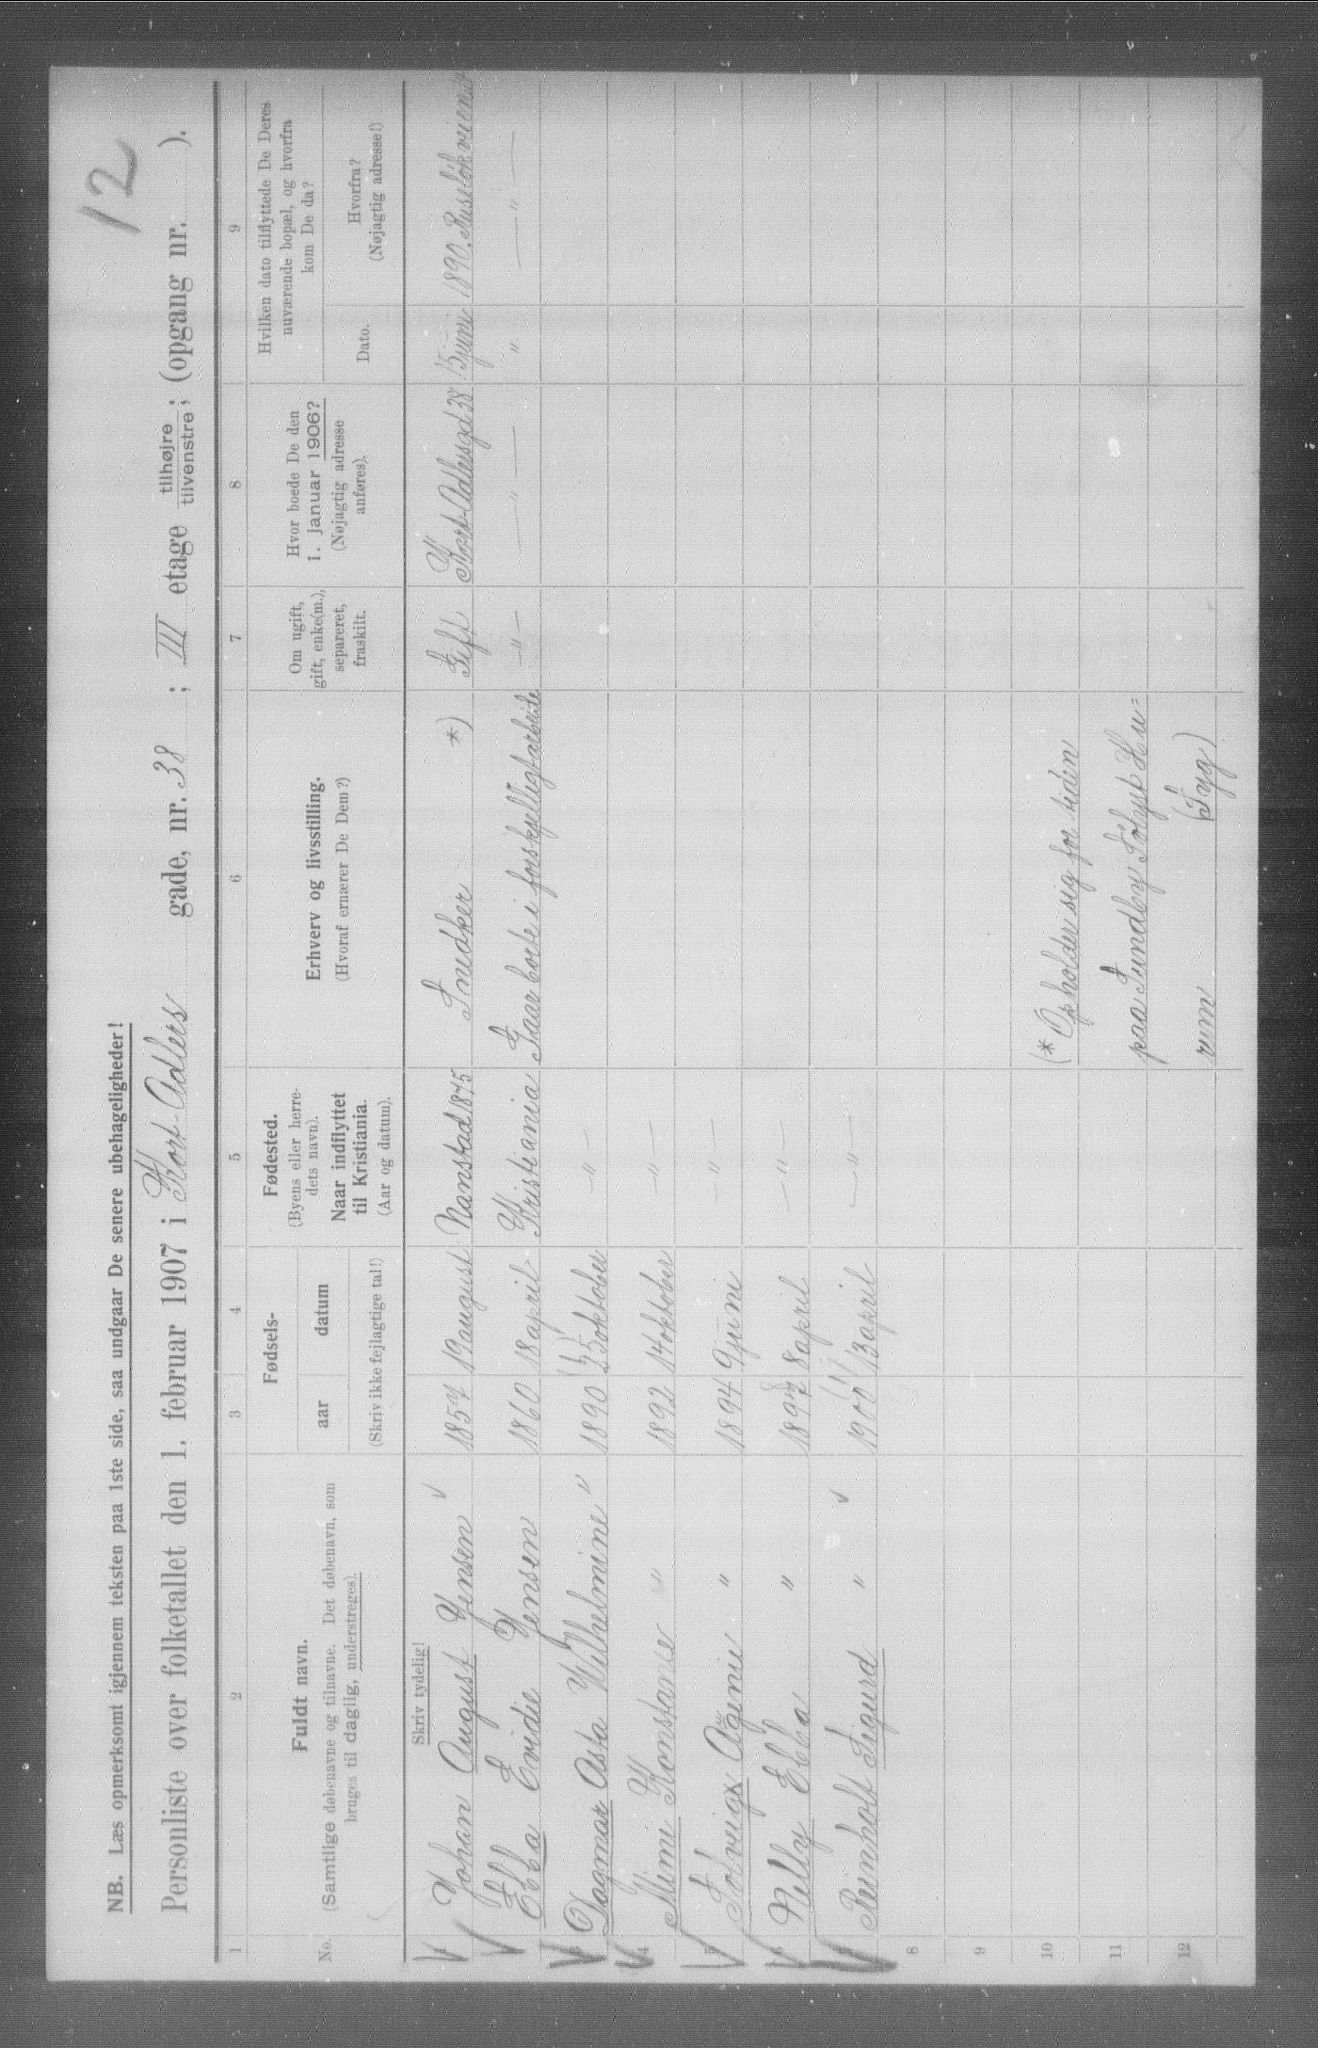 12
NB. Læs opmerksomt igjennem teksten paa 1ste side, saa undgaar De senere ubehageligheder!
Personliste over folketallet den 1. februar 1907 i Kort-Adlers gade, nr. 38; III etage tilhøjre/tilvenstre; (opgang nr. ).
1 2 3 4 5 6 7 8 9
No.
Fuldt navn.
(Samtlige døbenavne og tilnavne. Det døbenavn, som
bruges til daglig, understreges).
Fødsels-
aar datum
(Skriv ikke fejlagtige tal!)
Fødested.
(Byens eller herre-
dets navn).
Naar indflyttet
til Kristiania.
(Aar og datum).
Erhverv og livsstilling.
(Hvoraf ernærer De Dem?)
Om ugift,
gift, enke(m.),
separeret,
fraskilt.
Hvor boede De den
1. januar 1906?
(Nøjagtig adresse
anføres).
Hvilken dato tilflyttede De Deres
nuværende bopæl, og hvorfra
kom De da?
Dato.
Hvorfra?
(Nøjagtig adresse!)
Skriv tydelig!
Johan August Jensen 1857 19 august 1875 Snedker *) Gift Kort-Adlersgd 38 15 juni 1890.
Ebba Jensen 1860 18 april Kristiania Gaar borte i forskjelligt arbeide —"— —"— " —"—
Dagmar Asta Wilhelmine " 1890 25 oktober —"—
4 Mimi Konstance " 1892 14 oktober —"—
5 Solveig " 1894 9 juni —"—
6 Nelly Ebba " 8 april —"—
7 Reinholt Sigurd " 13 april —"—
8
9
10 (* Opholder sig for tiden
11 paa Sundby Hu=
12 rum (Syg)